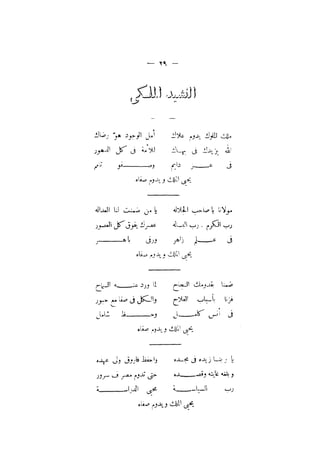 — ٢٩ —
النشيد الملكى
ملك الملوك يدوم علاك أمل الوجود هو رضاك
الله يزيدك فى بهاك للأمة فى كل الدهور
فى عز دايم وصفو تام
يحيى الملك ويدوم صفاه
مولانا يا صاحب الجلاله يا من ضمنت لنا العداله
رب الكرم . رب عصرك يفوق كل العصور
فى علم زاهر ورقى باهر
يحيى الملك ويدوم صفاه
ضمنا بقدومك النجاح لما ورد عنه السماح
فزنا بأسباب الفلاح والكل فى صفا مع حبور
فى أنس كامل وحظ شامل
يحيى الملك ويدوم صفاه
يا ربنا زيده فى مجده واحفظ فاروق ولى عهده
وبلغه غايته وقصده حتى تدوم مصر ف سرور
رب السياسة محيى
يحيى الملك ويدوم صفاه